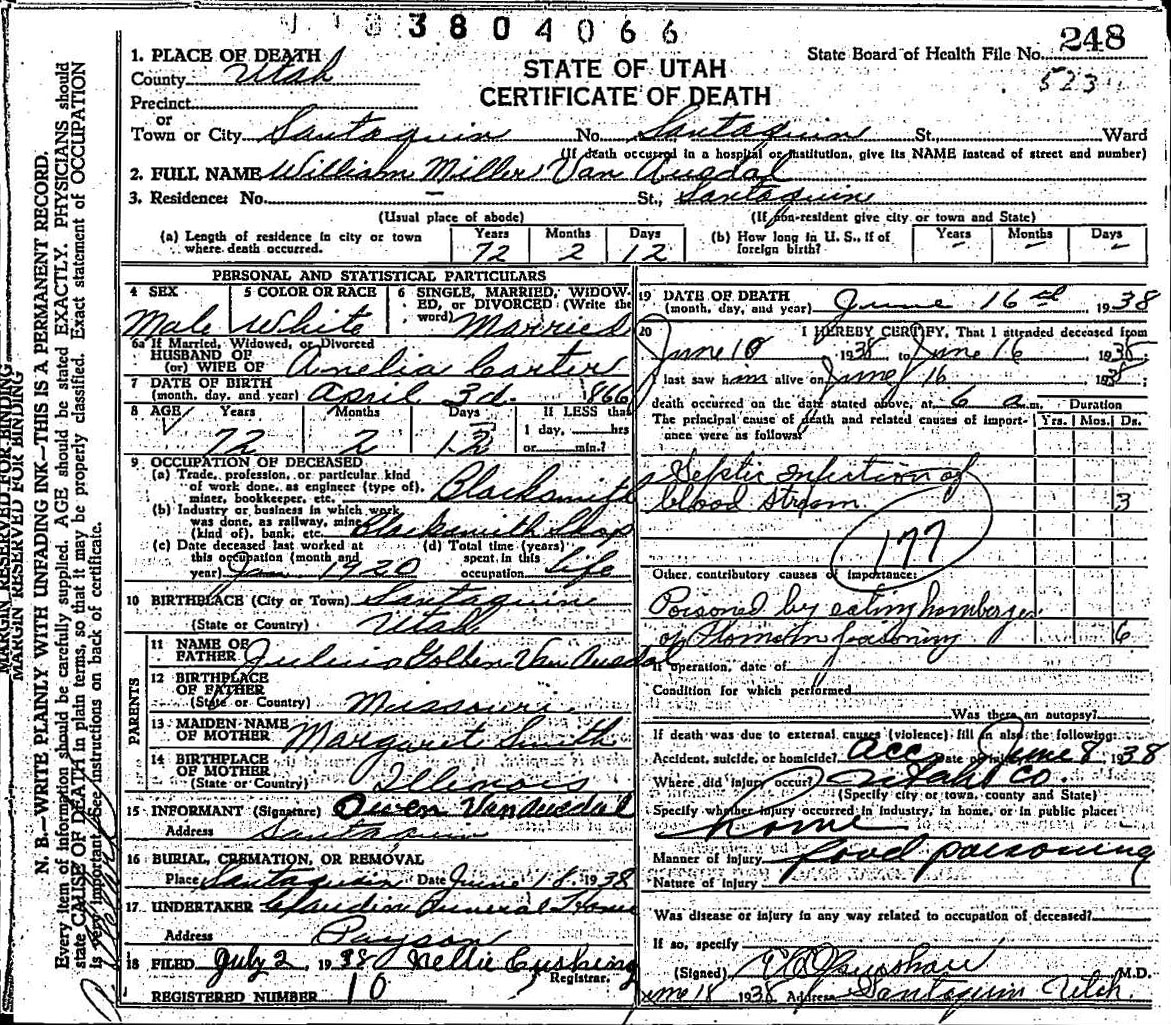 3804066
248
State Board of Health File No.
523
STATE OF UTAH
CERTIFICATE OF DEATH
1. PLACE OF DEATH
County Utah
Precinct
or
Town or City Santaquin No. Santaquin St. Ward
(If death occurred in a hospital or institution, give its NAME instead of street and number)
2. FULL NAME William Miller Van Ausdal
3. Residence: No. — St., Santaquin
(Usual place of abode) (If non-resident give city or town and State)
(a) Length of residence in city or town where death occurred. Years 72 Months 2 Days 12
(b) How long in U. S., if of foreign birth? Years – Months – Days –
PERSONAL AND STATISTICAL PARTICULARS
4 SEX Male
5 COLOR OR RACE White
6 SINGLE, MARRIED, WIDOWED, or DIVORCED (Write the word) Married
6a If Married, Widowed, or Divorced
HUSBAND OF
(or) WIFE OF Amelia Carter
7 DATE OF BIRTH
(month, day, and year) April 3d. 1866
8 AGE Years 72 Months 2 Days 12
If LESS than 1 day, hrs or min.?
9 OCCUPATION OF DECEASED
(a) Trade, profession, or particular kind of work done, as engineer (type of), miner, bookkeeper, etc. Blacksmith
(b) Industry or business in which work was done, as railway, mine (kind of), bank, etc. Blacksmith Shop
(c) Date deceased last worked at this occupation (month and year) Jan 1920
(d) Total time (years) spent in this occupation Life
10 BIRTHPLACE (City or Town) Santaquin
(State or Country) Utah
PARENTS
11 NAME OF FATHER Julius Van Ausdal
12 BIRTHPLACE OF FATHER
(State or Country) Missouri
13 MAIDEN NAME OF MOTHER Margaret Smith
14 BIRTHPLACE OF MOTHER
(State or Country) Illinois
15 INFORMANT (Signature) Owen VanAusdal
Address Santaquin
16 BURIAL, CREMATION, OR REMOVAL
Place Santaquin Date June 18 1938
17 UNDERTAKER Funeral Home
Address Payson
18 FILED July 2, 1938 Nellie Cushing
Registrar.
REGISTERED NUMBER 10
19 DATE OF DEATH
(month, day, and year) June 16th 1938
20 I HEREBY CERTIFY, That I attended deceased from
June 10 1938 to June 16 1938
I last saw him alive on June 16 1938
death occurred on the date stated above, at 6 a.m. Duration
The principal cause of death and related causes of importance were as follows: Yrs. Mos. Ds.
Septic infection of
blood stream 3
177
Other contributory causes of importance:
Poisoned by eating hamberger
or poisoning 6
If operation, date of
Condition for which performed
Was there an autopsy?
If death was due to external causes (violence) fill in also the following:
Accident, suicide, or homicide? Acc Date of June 8 1938
Where did injury occur? Utah Co.
(Specify city or town, county and State)
Specify whether injury occurred in industry, in home, or in public place:
home
Manner of injury food poisoning
Nature of injury
Was disease or injury in any way related to occupation of deceased?
If so, specify
(Signed) M.D.
June 18 1938 Address Santaquin Utah.
MARGIN RESERVED FOR BINDING
MARGIN RESERVED FOR BINDING
N. B.—WRITE PLAINLY WITH UNFADING INK—THIS IS A PERMANENT RECORD.
Every item of information should be carefully supplied. AGE should be stated EXACTLY. PHYSICIANS should
state CAUSE OF DEATH in plain terms, so that it may be properly classified. Exact statement of OCCUPATION
is very important. See instructions on back of certificate.